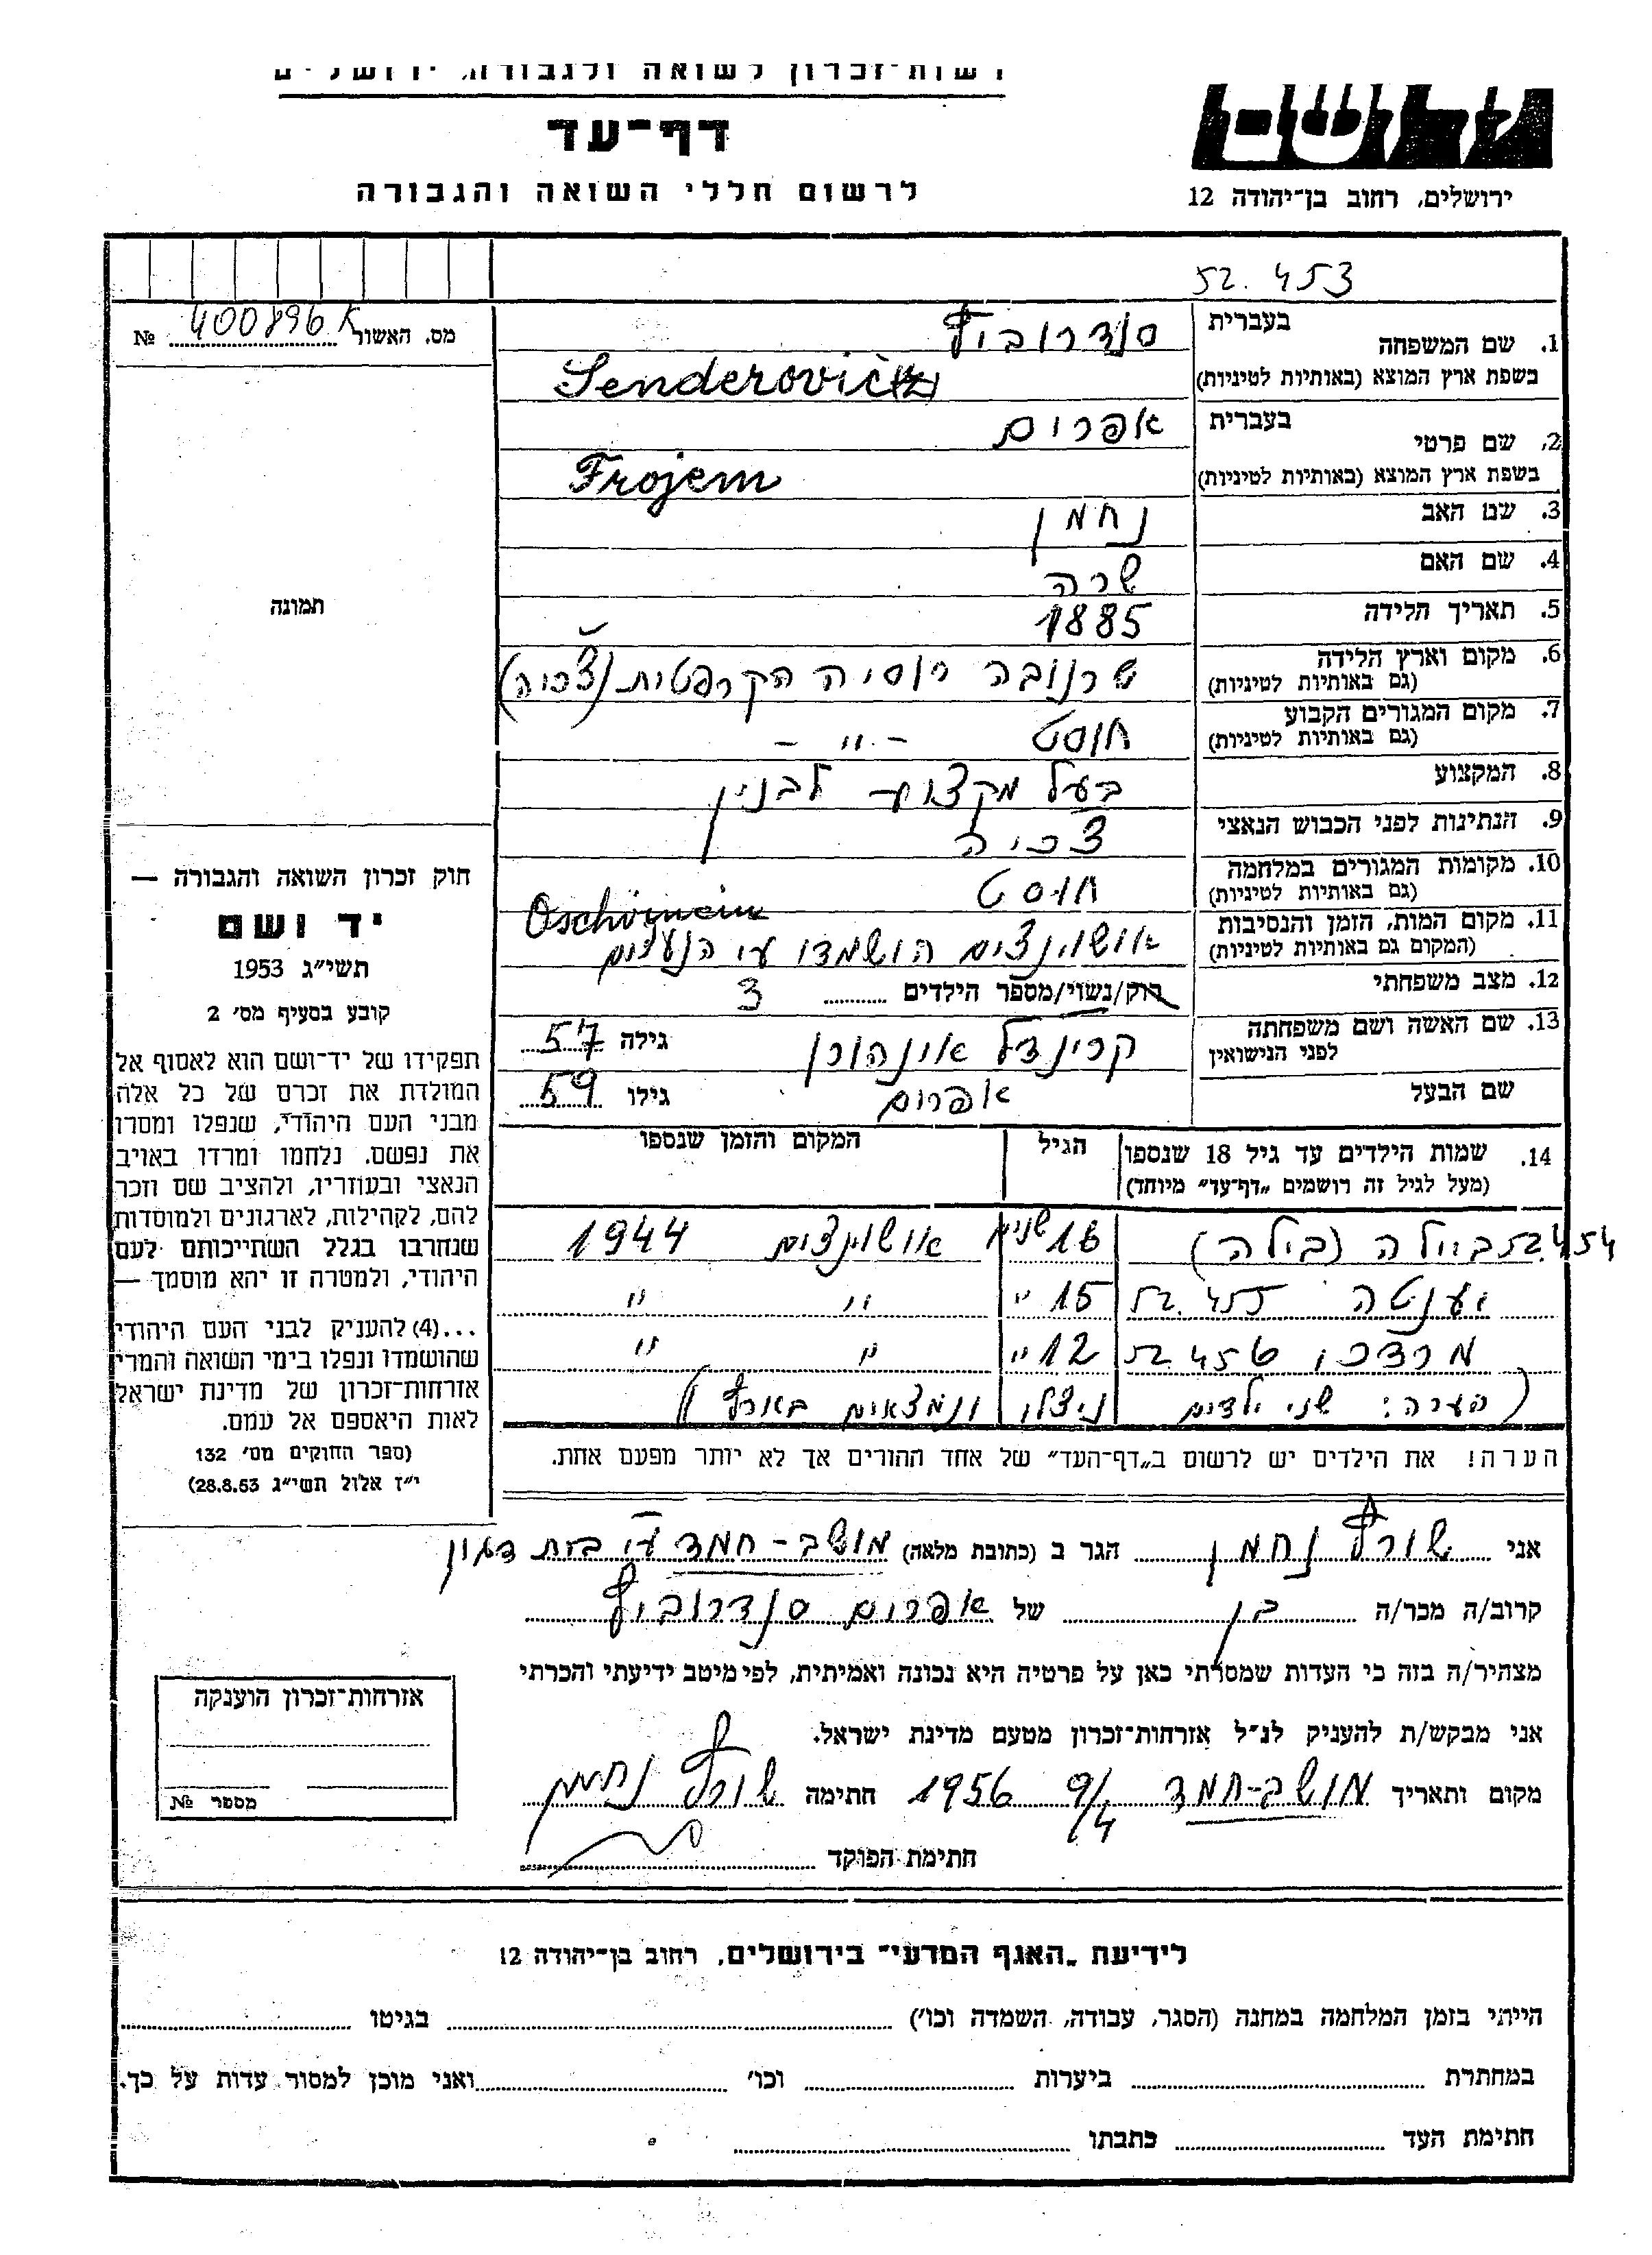 רשות־זכרון לשואה ולגבורה, ירושלים
דף־עד
לרשום חללי השואה והגבורה
ירושלים, רחוב בן־יהודה 12
52.453
מס. האשור 400896 K №
1. שם המשפחה
בעברית
סנדרוביץ
בשפת ארץ המוצא (באותיות לטיניות)
Senderovic(tz)
2. שם פרטי
בעברית
אפרים
בשפת ארץ המוצא (באותיות לטיניות)
Frojem
3. שם האב נחמן
4. שם האם שרה
5. תאריך הלידה 1885
6. מקום וארץ הלידה
(גם באותיות לטיניות)
שרנובה רוסיה הקרפטית (צ'כיה)
7. מקום המגורים הקבוע
(גם באותיות לטיניות)
חוסט – " –
8. המקצוע בעל מקצוע לבנין
9. הנתינות לפני הכבוש הנאצי צכיה
10. מקומות המגורים במלחמה
(גם באותיות לטיניות)
חוסט
11. מקום המות, הזמן והנסיבות
(המקום גם באותיות לטיניות)
אושוינצים הושמדו ע"י הנאצים
12. מצב משפחתי רוק/נשוי/מספר הילדים 3
13. שם האשה ושם משפחתה
לפני הנישואין
קריינדל אינהורן גילה 57
שם הבעל אפרים גילו 59
14. שמות הילדים עד גיל 18 שנספו
(מעל לגיל זה רושמים „דף־עד" מיוחד)
הגיל
המקום והזמן שנספו
52.454 ביילה (בילה) 16 שנים אושוינצים 1944
יענטה 52.455 15 " " "
מרדכי 52.456 12 " " "
(הערה: שני ילדים ניצלו ונמצאים בארץ)
הערה! את הילדים יש לרשום ב„דף־העד" של אחד ההורים אך לא יותר מפעם אחת.
תמונה
חוק זכרון השואה והגבורה —
יד ושם
תשי״ג 1953
קובע בסעיף מס׳ 2
תפקידו של יד־ושם הוא לאסוף אל
המולדת את זכרם של כל אלה
מבני העם היהודי, שנפלו ומסרו
את נפשם. נלחמו ומרדו באויב
הנאצי ובעוזריו, ולהציב שם וזכר
להם, לקהילות, לארגונים ולמוסדות
שנחרבו בגלל השתייכותם לעם
היהודי, ולמטרה זו יהא מוסמך —
...(4) להעניק לבני העם היהודי
שהושמדו ונפלו בימי השואה והמרי
אזרחות־זכרון של מדינת ישראל
לאות היאספם אל עמם.
(ספר החוקים מס׳ 132
י״ז אלול תשי״ג 28.8.53)
אני שורץ נחמן הגר ב (כתובת מלאה) מושב-חמד ע"י בית דגון
קרוב/ה מכר/ה בן של אפרים סנדרוביץ
מצהיר/ה בזה כי העדות שמסרתי כאן על פרטיה היא נכונה ואמיתית, לפי מיטב ידיעתי והכרתי
אני מבקש/ת להעניק לנ״ל אזרחות־זכרון מטעם מדינת ישראל.
מקום ותאריך מושב-חמד 9/4 1956 חתימה שורץ נחמן
חתימת הפוקד
אזרחות־זכרון הוענקה
מספר №
לידיעת „האגף המדעי" בירושלים, רחוב בן־יהודה 12
הייתי בזמן המלחמה במחנה (הסגר, עבודה, השמדה וכו׳) בגיטו
במחתרת ביערות וכו׳ ואני מוכן למסור עדות על כך.
חתימת העד כתבתו